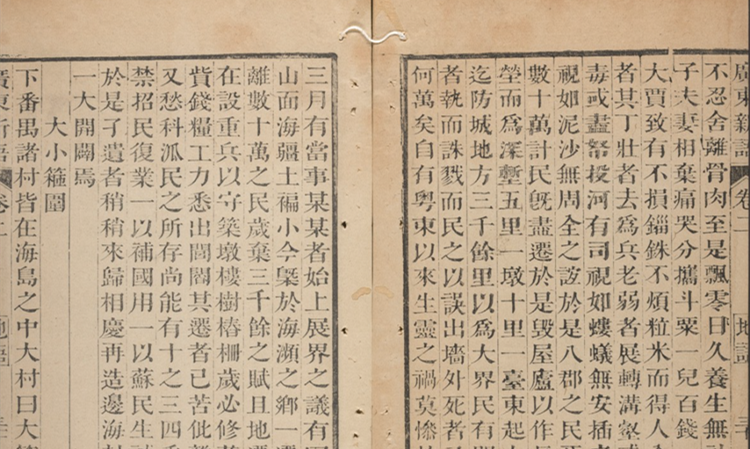 廣東新語 卷二 地語
不忍舍離骨肉至是飄零日久養生無
子夫妻相棄痛哭分攜斗粟一兒百錢
大賈致有不損錙銖不煩粒米而得人
者其丁壯者去爲兵老弱者展轉溝壑
毒或盡帑投河有司視如螻蟻無安插
視如泥沙無周全之誼於是八郡之民死
數十萬計民旣盡遷於是毀屋廬以作
塋而爲深塹五里一墩十里一臺東起
迄防城地方三千餘里以爲大界民有
者執而誅戮而民之以誤出墻外死者
何萬矣自有粵東以來生靈之禍莫慘
三月有當事某某者始上展界之議有
山而海疆土褊小今槩於海瀕之鄉一
離數十萬之民歲棄三千餘之賦且地
在設重兵以守築墩樓樹樁柵歲必修
貲錢糧工力悉出閭閻其遷者已苦仳
又愁科派民之所存尚能有十之三四
禁招民復業一以補國用一以蘇民生
於是孑遺者稍稍來歸相慶再造邊海
一大開闢焉
大小箍圍
下番禺諸村皆在海島之中大村曰大
廣東新語 卷二 地語